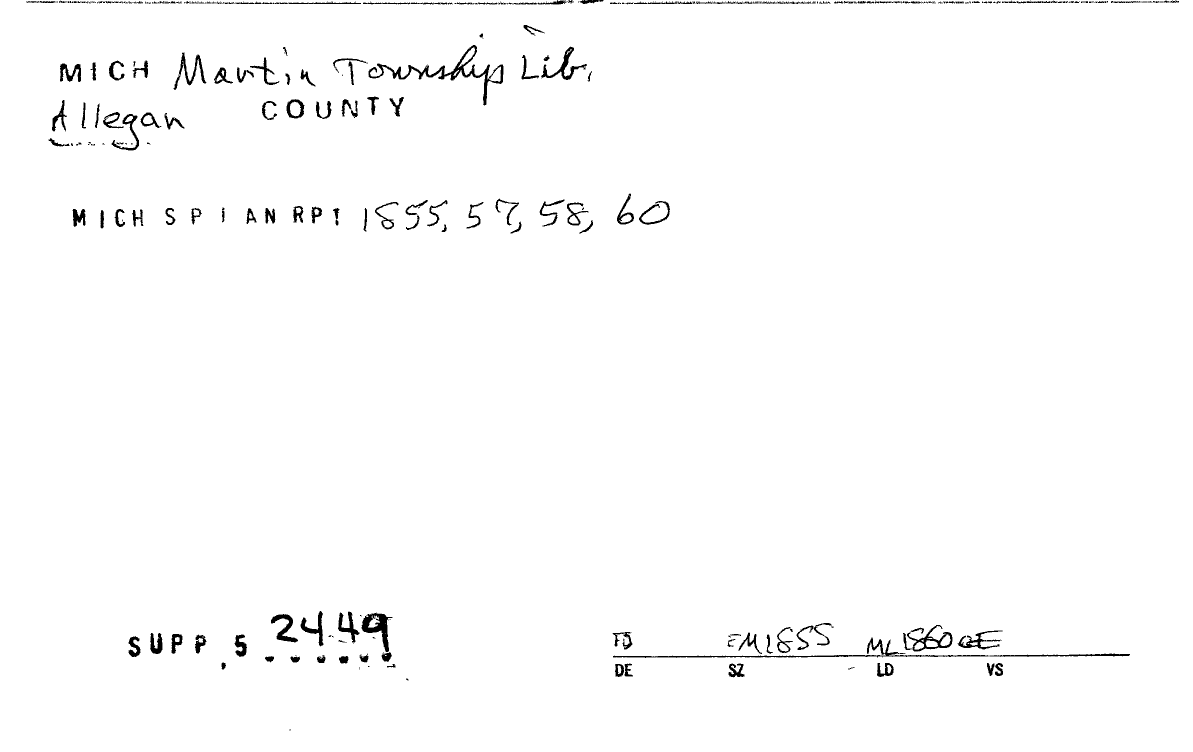 MICH Martin Township Lib.
Allegan COUNTY
MICH S P I AN RPT 1855, 57, 58, 60
SUPP. 5 2449
EM1855 ML1860
DE SZ LD VS